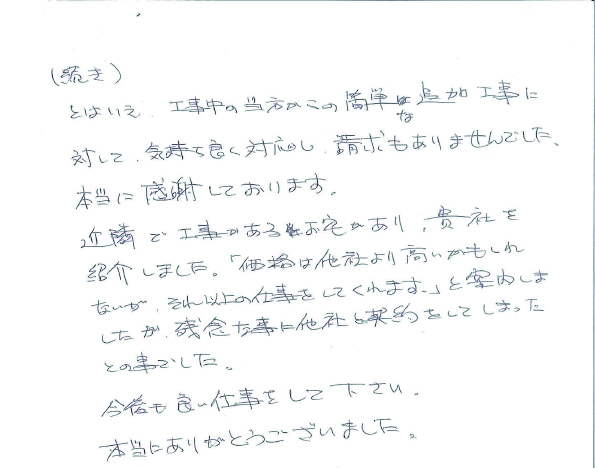 (続き)
とはいえ、工事中の当方からの簡単な追加工事に
対して、気持ち良く対応し、請求もありませんでした、
本当に感謝しております。
近隣で工事があるお宅があり、貴社を
紹介しました。「価格は他社より高いかもしれ
ないが、それ以上の仕事をしてくれます。」と案内しま
したが、残念な事に他社と契約をしてしまった
との事でした。
今後も良い仕事をして下さい。
本当にありがとうございました。